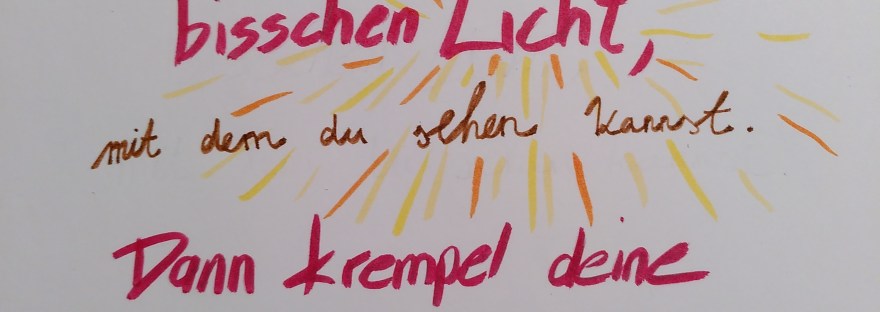 bisschen Licht,
mit dem du sehen kannst.
Dann krempel deine